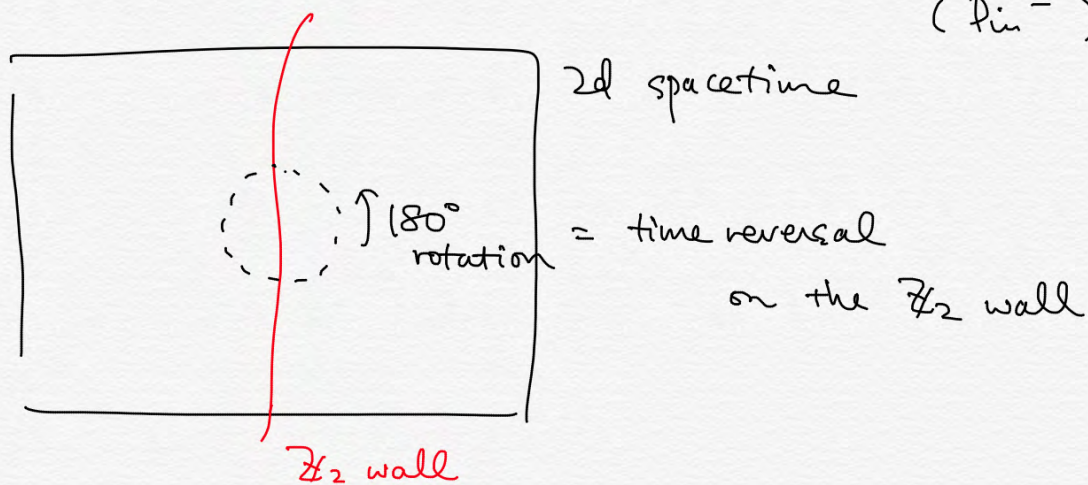 (Pin⁻)
2d spacetime
180°
rotation
= time reversal
on the ℤ₂ wall
ℤ₂ wall